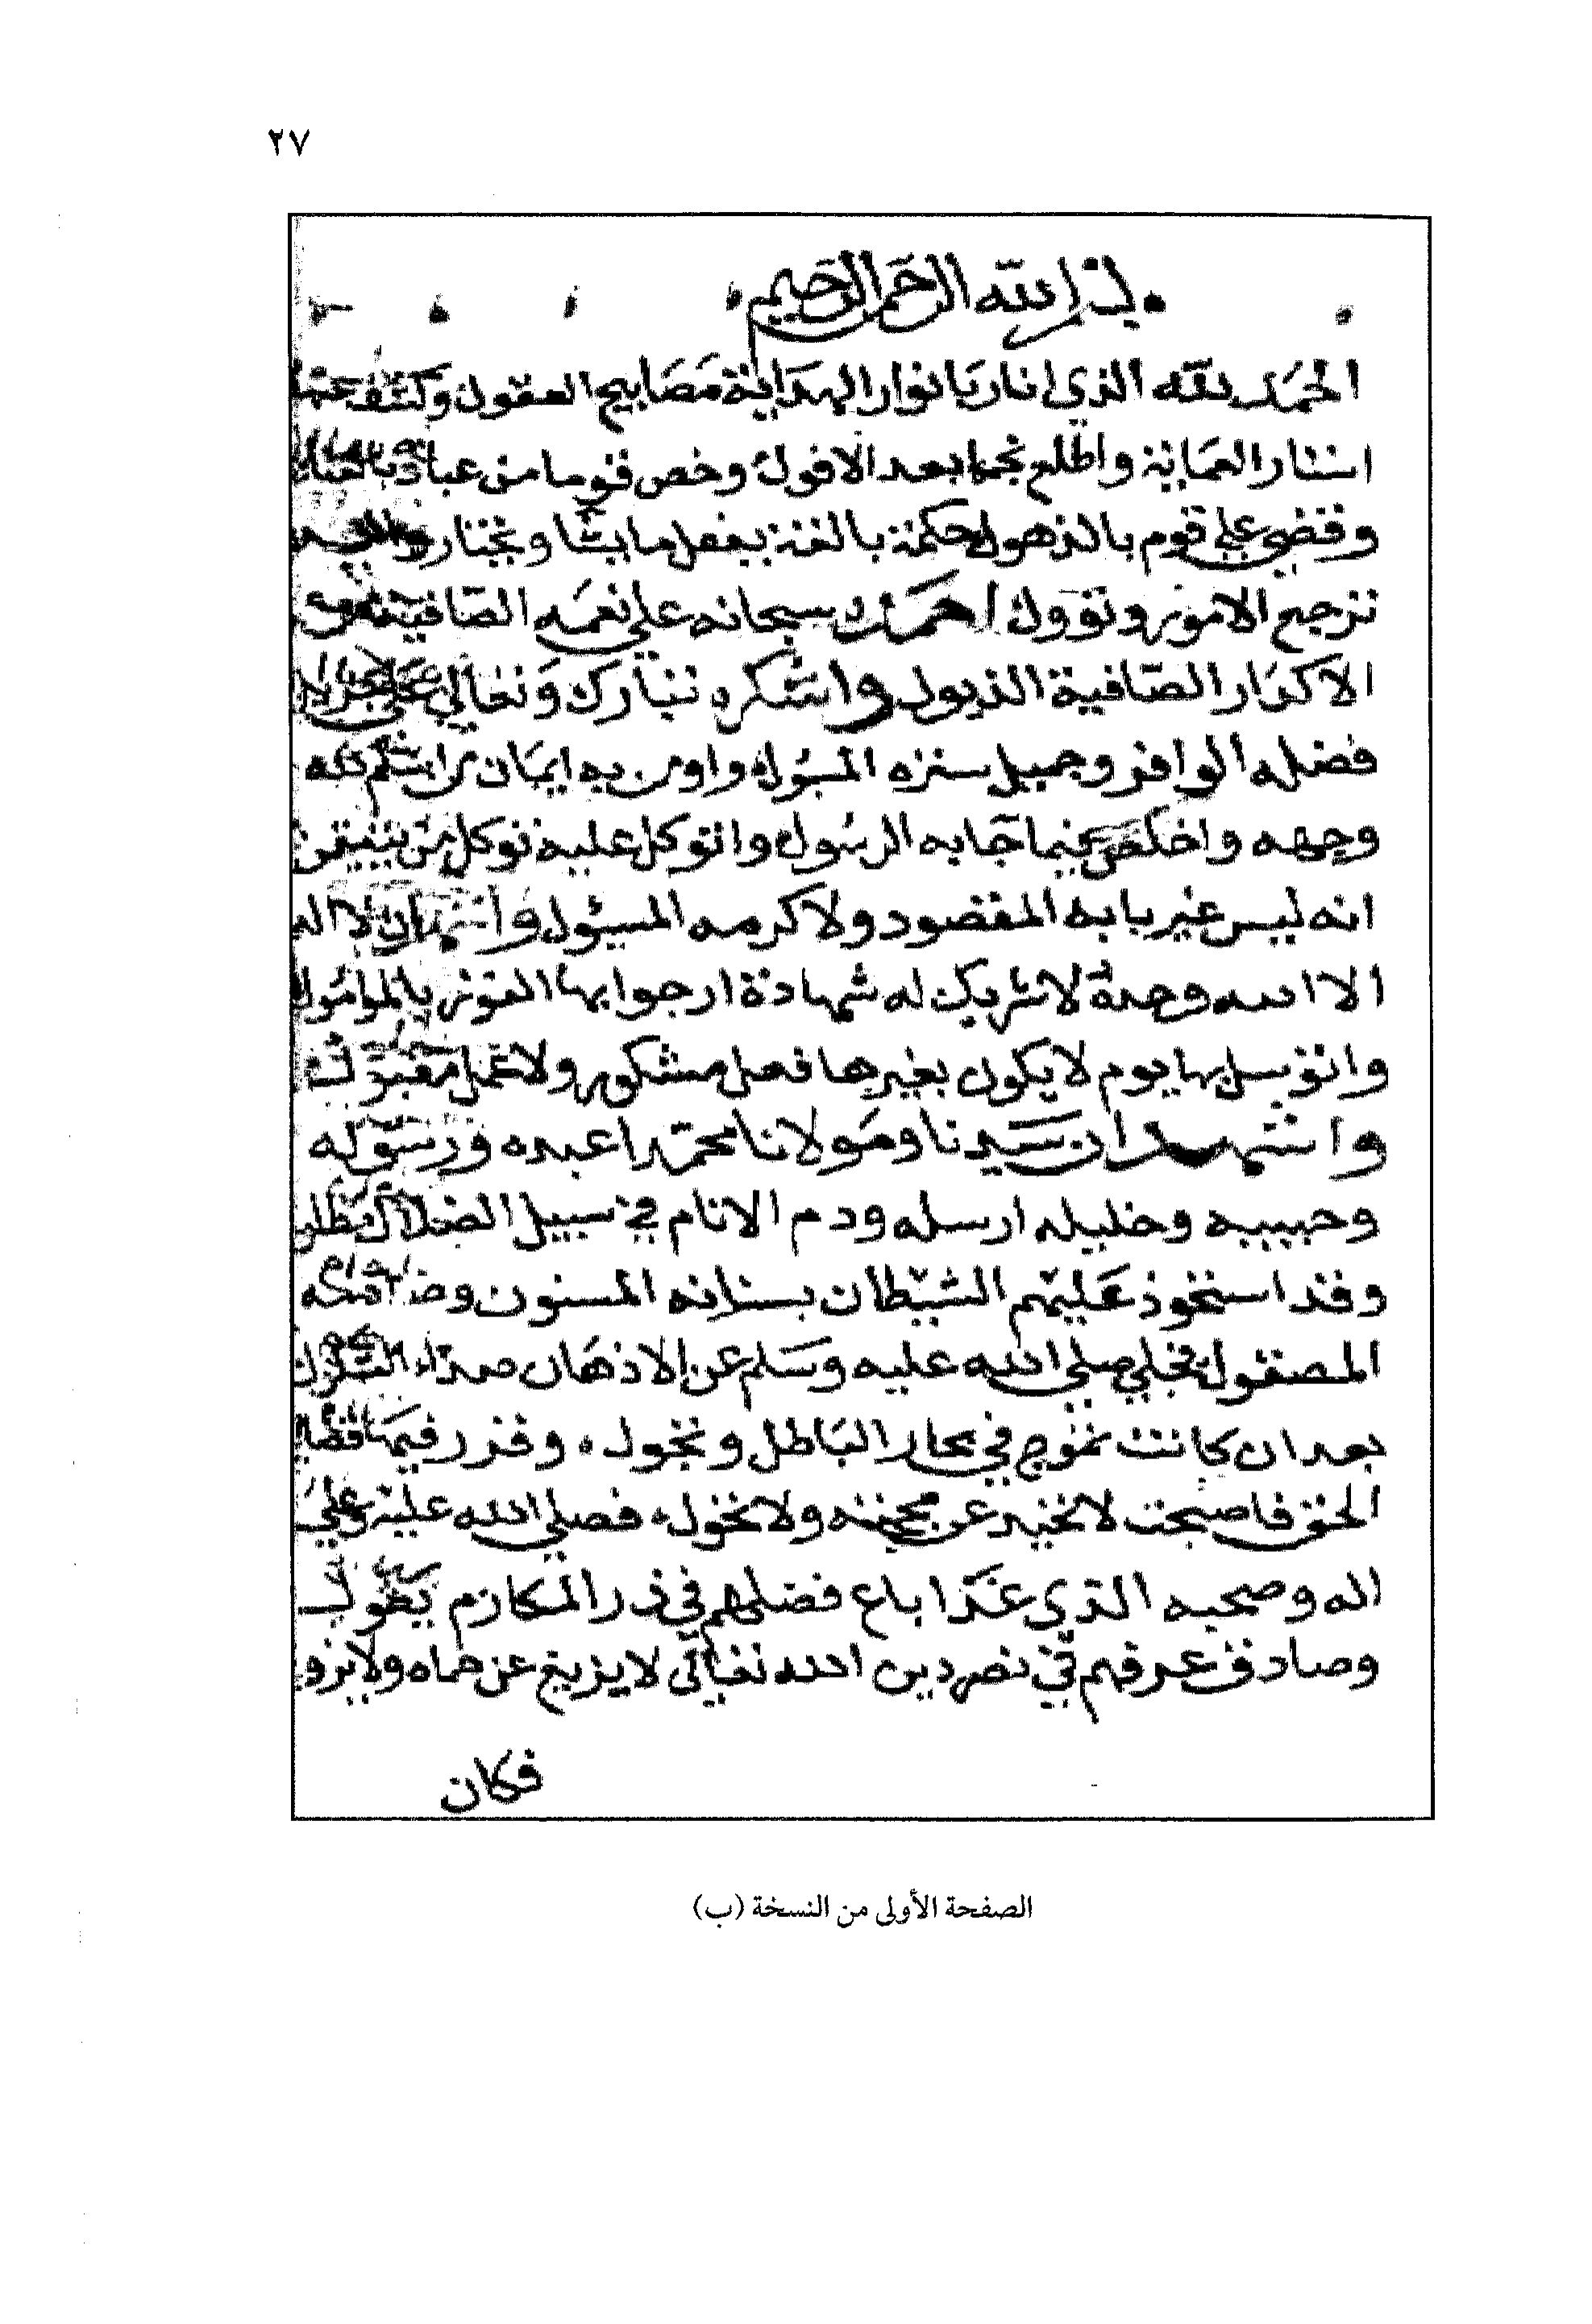 ٢٧
بسم الله الرحمن الرحيم
الحمد لله الذي انار بانوار الهداية مصابيح العقول وكشف عنها
استار العماية واطلع نجما بعد الافول وخص قوما من عباده
وقضى على قوم بالذهول لحكمة بالغة يفعل ما يشا ويختار واليه
ترجع الامور وتؤول احمده سبحانه على نعمه الصافية
الاكدار الضافية الذيول واشكره تبارك وتعالى على
فضله الوافر وجميل ستره المسبول واومن به ايمان من اسلم لله
وجهه واخلص فيما جا به الرسول واتوكل عليه توكل من تيقن
انه ليس غير بابه المقصود ولا كرمه المسئول واشهد ان لا اله
الا الله وحده لا شريك له شهادة ارجوا بها الفوز بالمامول
واتوسل بها يوم لا يكون بغيرها فعل مشكور ولا عمل مقبول
واشهد ان سيدنا ومولانا محمدا عبده ورسوله
وحبيبه وخليله ارسله ودم الانام في سبيل الضلال مطلول
وقد استحوذ عليهم الشيطان بسنانه المسنون
المصقول فجلى صلى الله عليه وسلم عن الاذهان صداء الشكوك
بعد ان كانت تموج في بحار الباطل وتجول وقرر فيها
الحق فاصبحت لا تحيد عن محجته ولا تحول فصلى الله عليه وعلى
اله وصحبه الذي غدا باع فضلهم في ذر المكارم يطول
وصادق عزمهم في نصر دين الله تعالى لا يزيغ عن حماه ولا يزول
فكان
الصفحة الأولى من النسخة (ب)